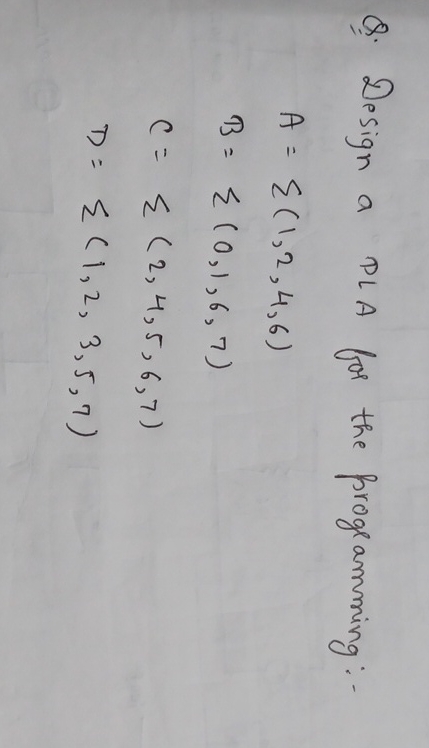 Q. Design a PLA for the programming:-
A = Σ(1,2,4,6)
B = Σ(0,1,6,7)
C = Σ(2,4,5,6,7)
D = Σ(1,2,3,5,7)